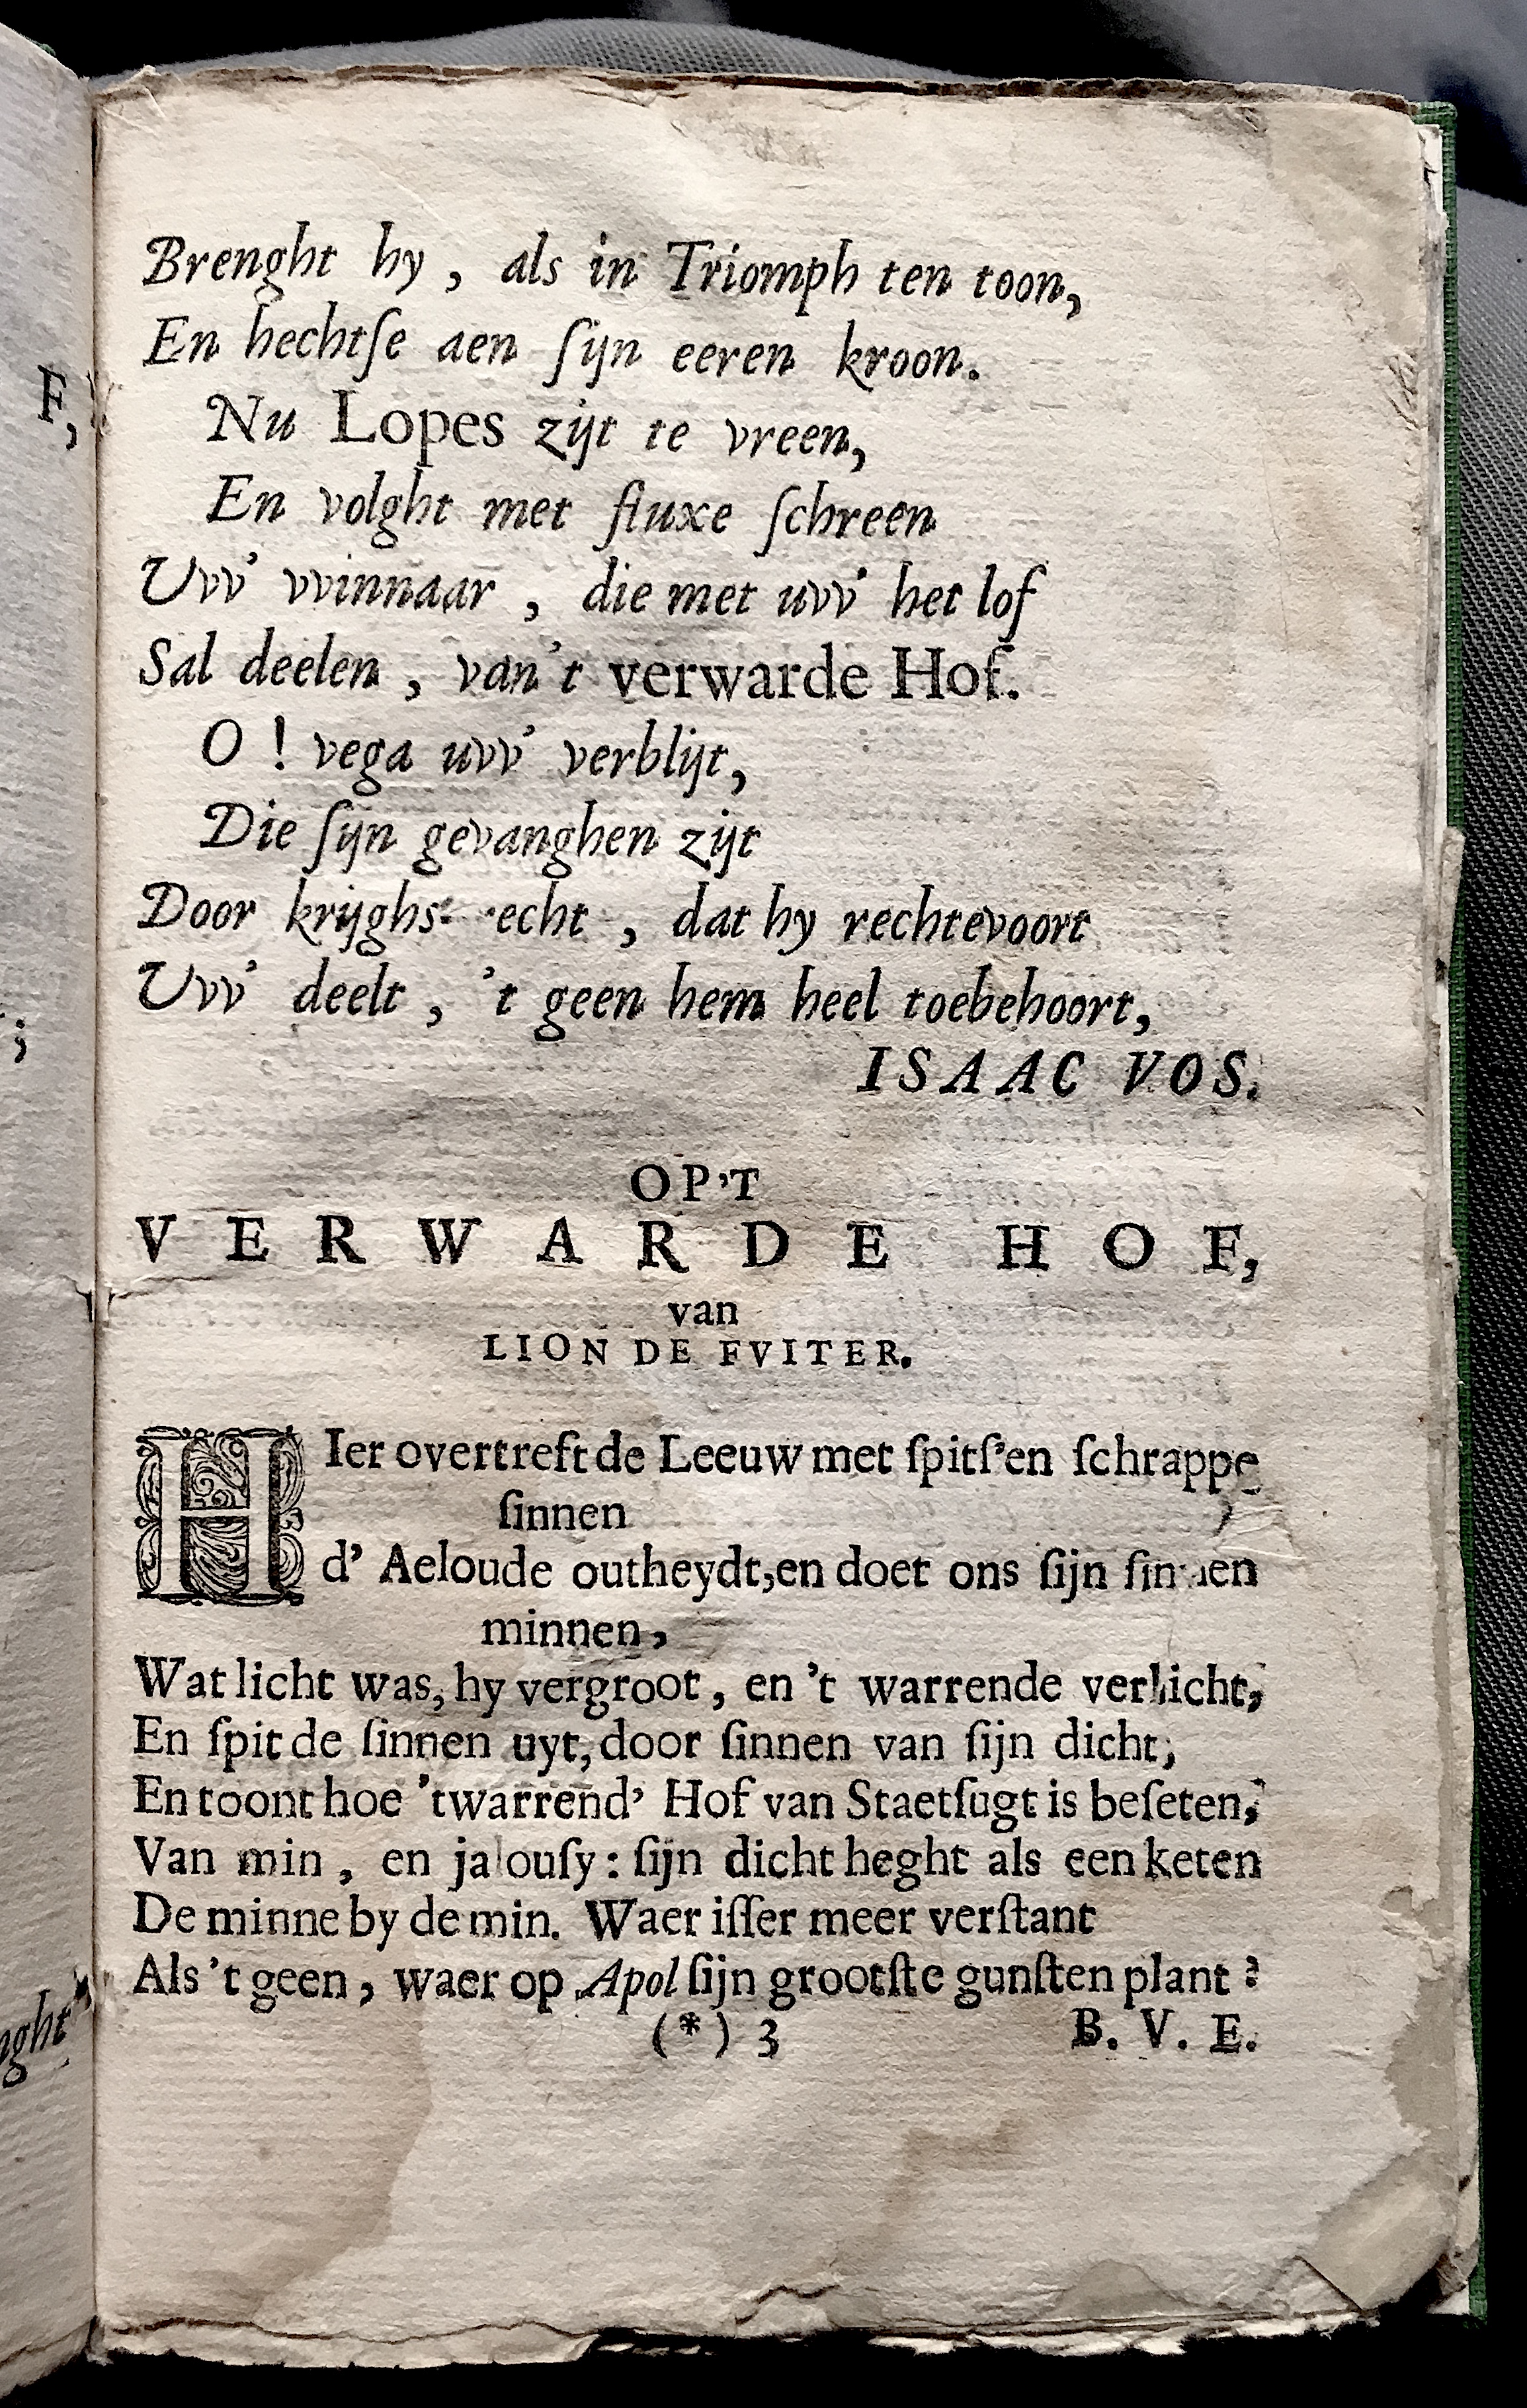 Brenght hy , als in Triomph ten toon,
En hechtſe aen ſijn eeren kroon.
Nu Lopes zijt te vreen,
En volght met fluxe ſchreen
Uvv' vvinnaar , die met uvv' het lof
Sal deelen , van't verwarde Hof.
O ! vega uvv' verblijt,
Die ſijn gevanghen zijt
Door , dat hy rechtevoort
Uvv' deelt , 't geen hem heel toebehoort,
ISAAC VOS.
OP'T
VERWARDE HOF,
van
LION DE FVITER.
HIer overtreft de Leeuw met ſpitſ'en ſchrappe
ſinnen
d' Aeloude outheydt,en doet ons ſijn ſinnen
minnen,
Wat licht was, hy vergroot, en 't warrende verlicht,
En ſpit de ſinnen uyt, door ſinnen van ſijn dicht,
En toont hoe 'twarrend' Hof van Staetſugt is beſeten,
Van min , en jalouſy : ſijn dicht heght als een keten
De minne by de min. Waer iſſer meer verſtant
Als 't geen, waer op Apol ſijn grootſte gunſten plant ?
(*) 3 B. V. E.
F,
;